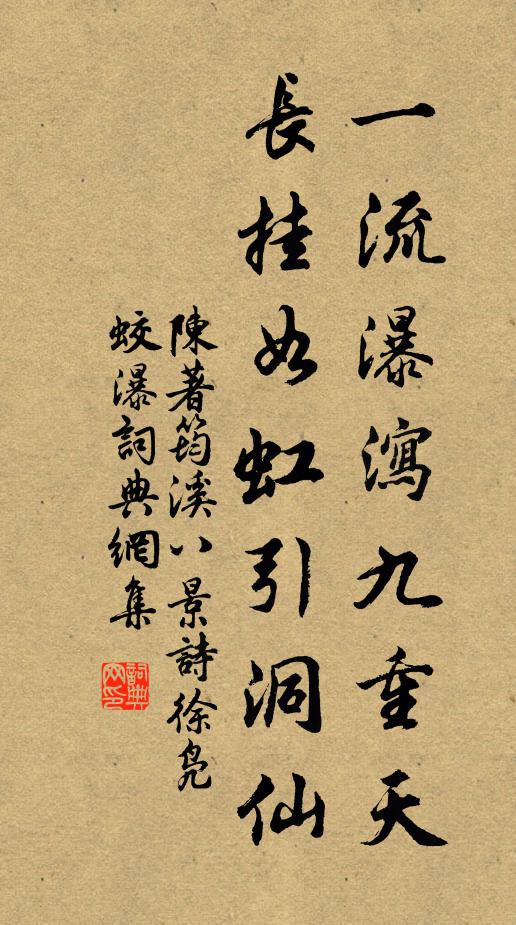 一流瀑瀉九重天
長挂如虹引洞仙
陳著筠溪八景詩徐鳧
蛟瀑詞典網集
詞典網印